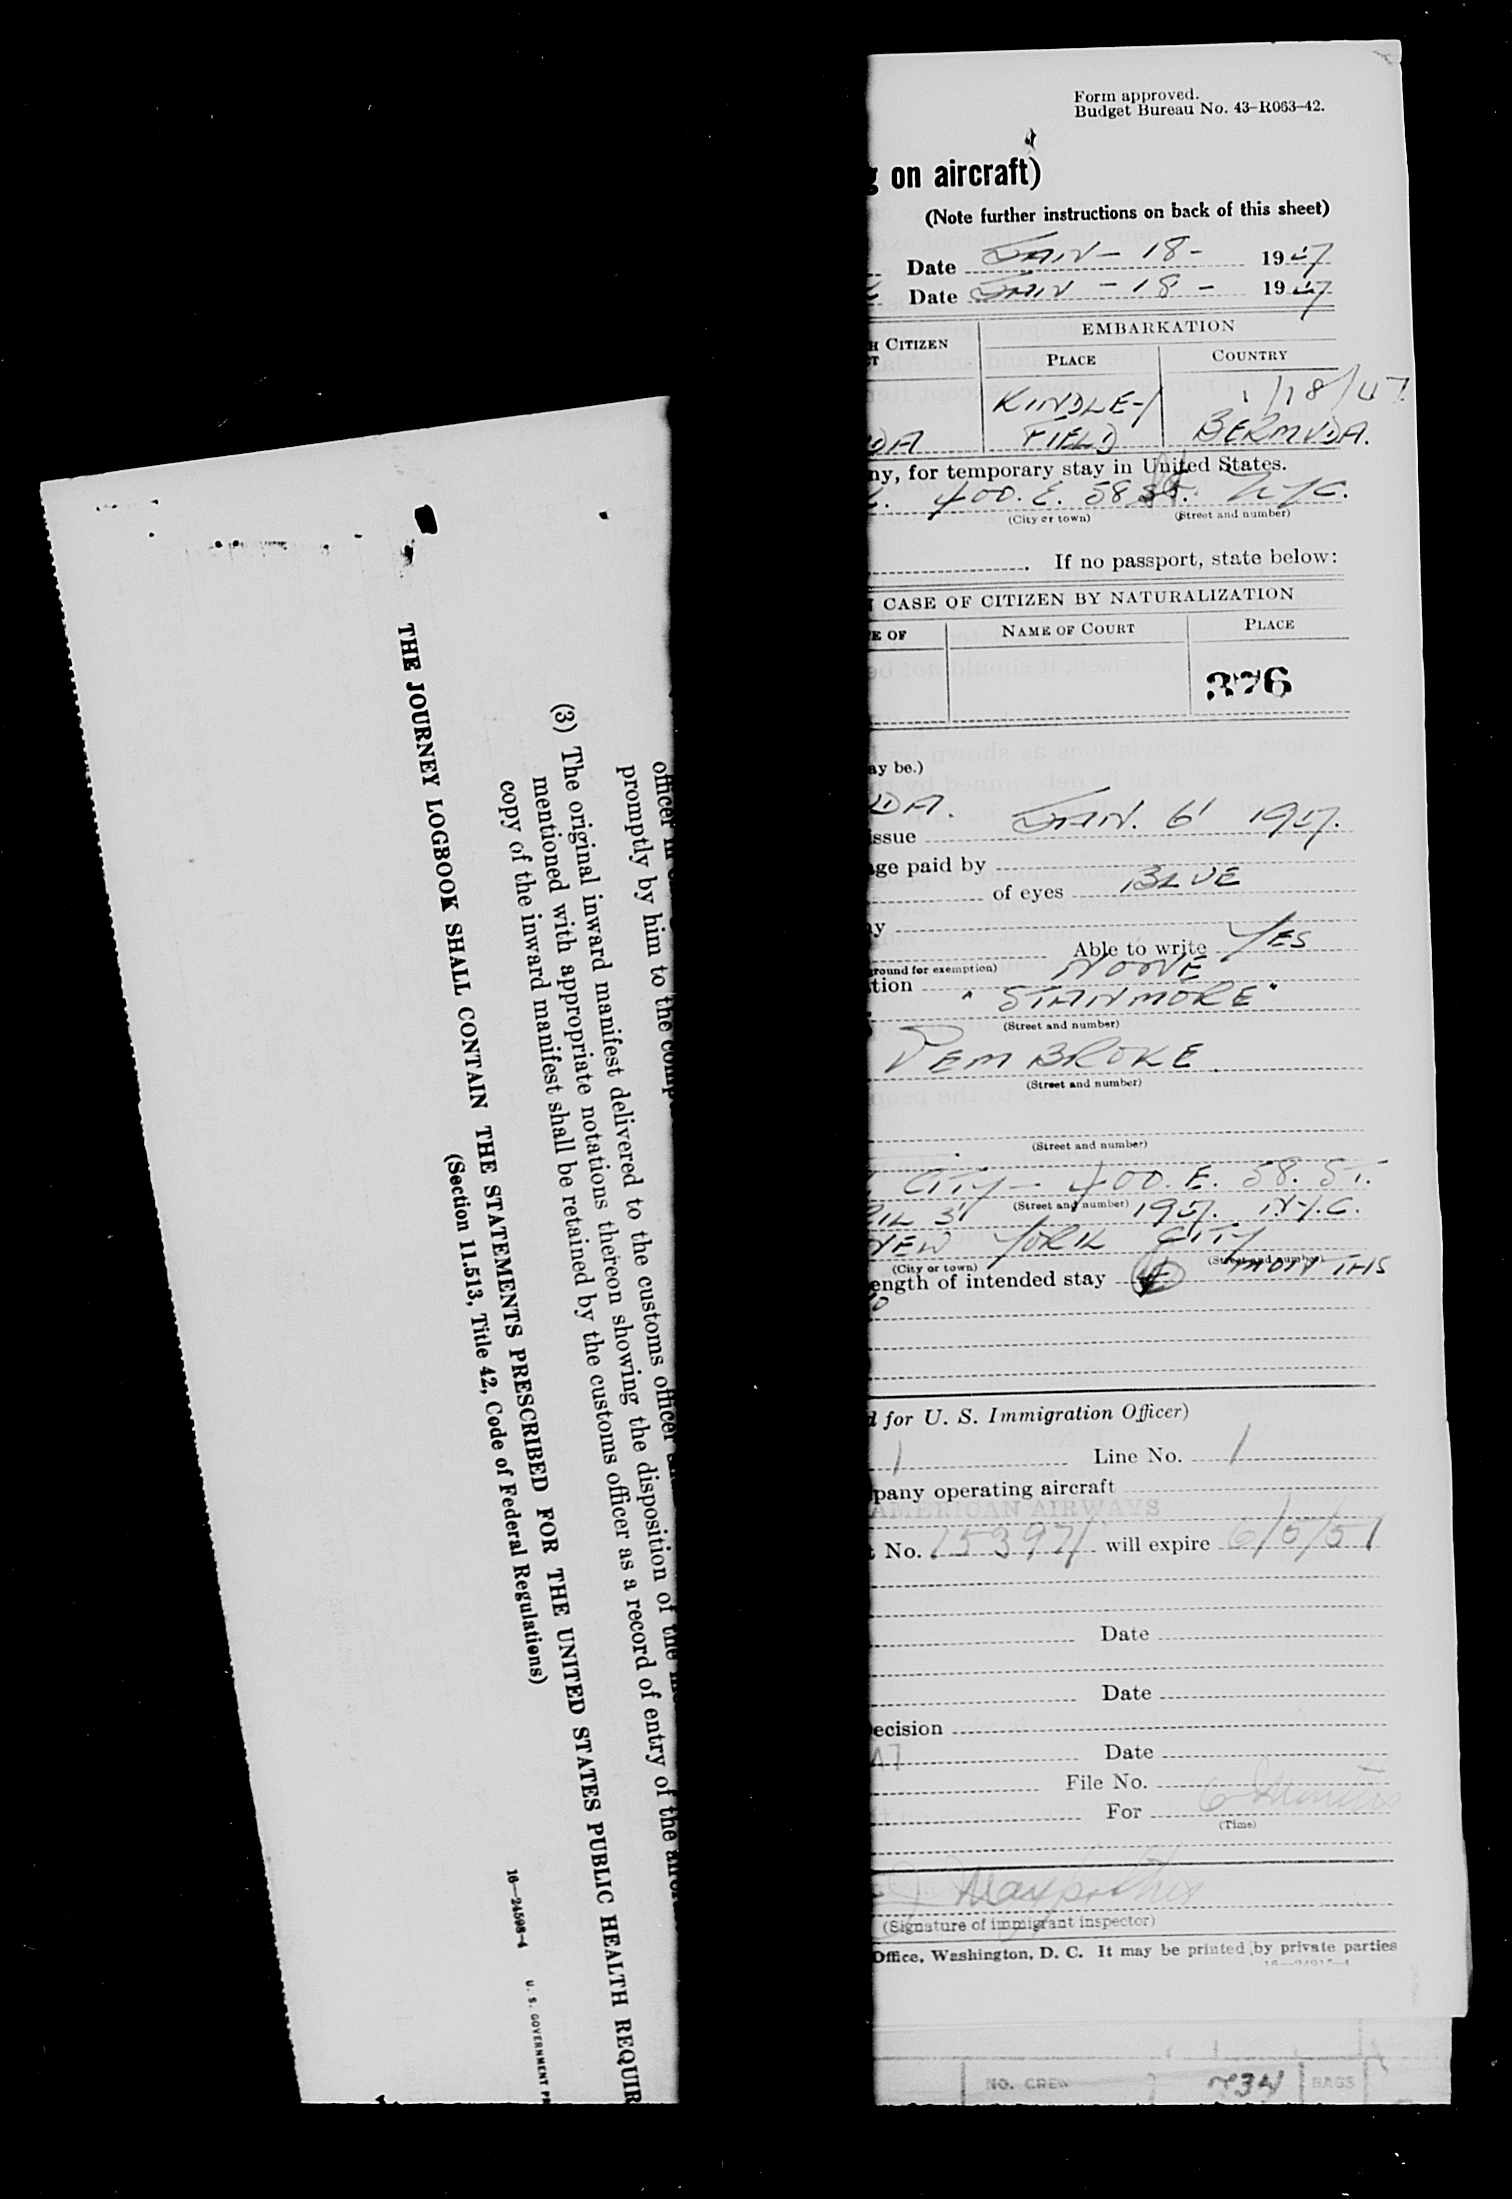 officer
promptly by him to the
(3) The original inward manifest delivered to the customs officer
mentioned with appropriate notations thereon showing the disposition of the
copy of the inward manifest shall be retained by the customs officer as a record of entry of the
THE JOURNEY LOGBOOK SHALL CONTAIN THE STATEMENTS PRESCRIBED FOR THE UNITED STATES PUBLIC HEALTH REQUIR
(Section 11.513, Title 42, Code of Federal Regulations)
16—24598-4 U. S. GOVERNMENT PR
Form approved.
Budget Bureau No. 43-R063-42.
g on aircraft)
(Note further instructions on back of this sheet)
Date JAN - 18 - 1947
Date JAN - 18 - 1947
H CITIZEN EMBARKATION
PLACE COUNTRY
KINDLEY 1/18/47
DA FIELD BERMUDA.
ny, for temporary stay in United States.
400. E. 58 St. NYC.
(City or town) (Street and number)
If no passport, state below:
N CASE OF CITIZEN BY NATURALIZATION
E OF NAME OF COURT PLACE
376
ay be.)
UDA.
issue JAN. 6' 1947.
age paid by
of eyes BLUE
y
Able to write YES
ground for exemption)
tion NONE
"STANMORE"
(Street and number)
PEMBROKE
(Street and number)
(Street and number)
CITY - 400. E. 58. ST.
(Street and number)
RIL 3' 1947. N.Y.C.
NEW YORK CITY
(City or town) (Street and number)
ength of intended stay MONTHS
d for U. S. Immigration Officer)
1 Line No. 1
pany operating aircraft
AMERICAN AIRWAYS
t No. 153971 will expire 6/5/51
Date
Date
ecision
Date
File No.
For 6
(Time)
(Signature of immigrant inspector)
Office, Washington, D. C. It may be printed by private parties
NO. CREW BAGS